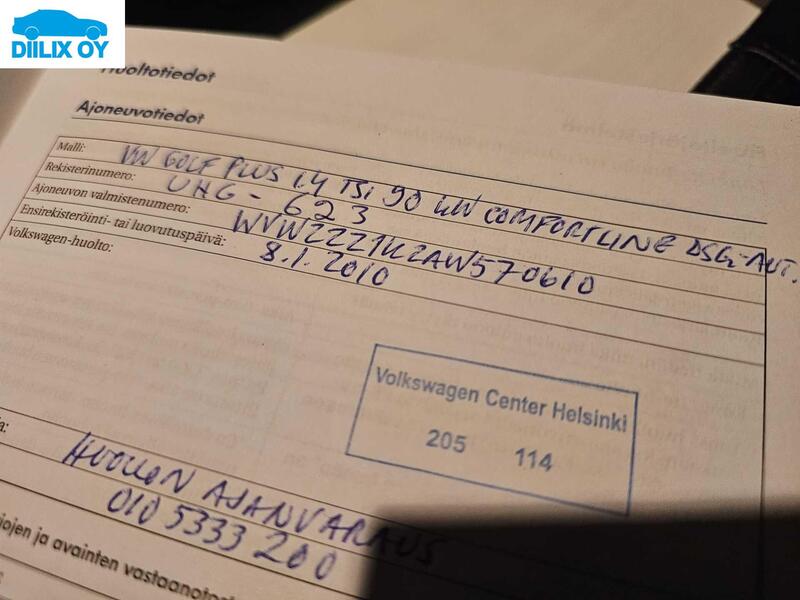 DIILIX OY
Huoltotiedot
Ajoneuvotiedot
Malli: VW GOLF PLUS 1.4 TSi 90 kW COMFORTLINE DSG-AUT.
Rekisterinumero: UHG-623
Ajoneuvon valmistenumero: WVWZZZ1KZAW570610
Ensirekisteröinti- tai luovutuspäivä: 8.1.2010
Volkswagen-huolto:
Volkswagen Center Helsinki
205 114
HUOLLON AJANVARAUS
010 5333 200
ja avainten